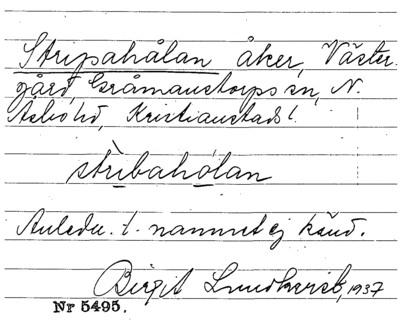 Stripahålan åker, Väster-
gård, Gråmanstorps sn, N.
Åsbo hd, Kristianstads l.
strìbahólan
Anledn. t. namnet ej känd.
Birgit Lundkvist, 1937
Nr 5495.